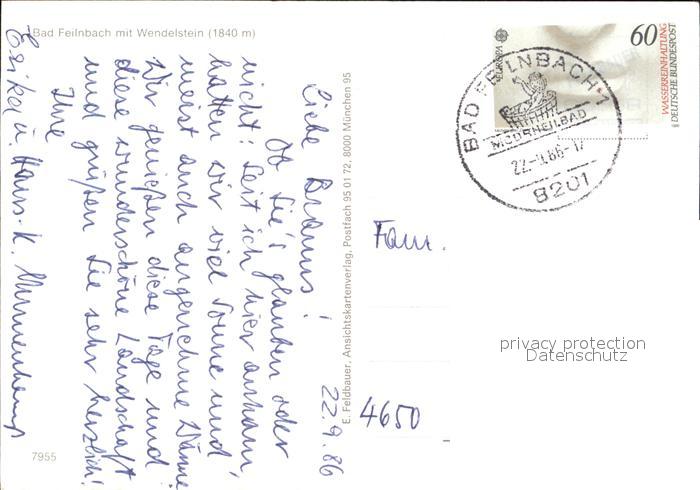 Bad Feilnbach mit Wendelstein (1840 m)
22.9.86
Liebe Brauns!
Ob Sie's glauben oder
nicht: Seit ich hier ankam,
hatten wir viel Sonne und
meist auch angenehme Wärme
Wir genießen diese Tage und
diese wunderschöne Landschaft
und grüßen Sie sehr herzlich!
Ihre
Erika u. Hans-K.
7955
E. Feldbauer, Ansichtskartenverlag, Postfach 95 01 72, 8000 München 95
EUROPA
60
WASSERREINHALTUNG
DEUTSCHE BUNDESPOST
BAD FEILNBACH 1
MOORHEILBAD
22.-9.86-17
8201
Fam.
privacy protection
Datenschutz
4650